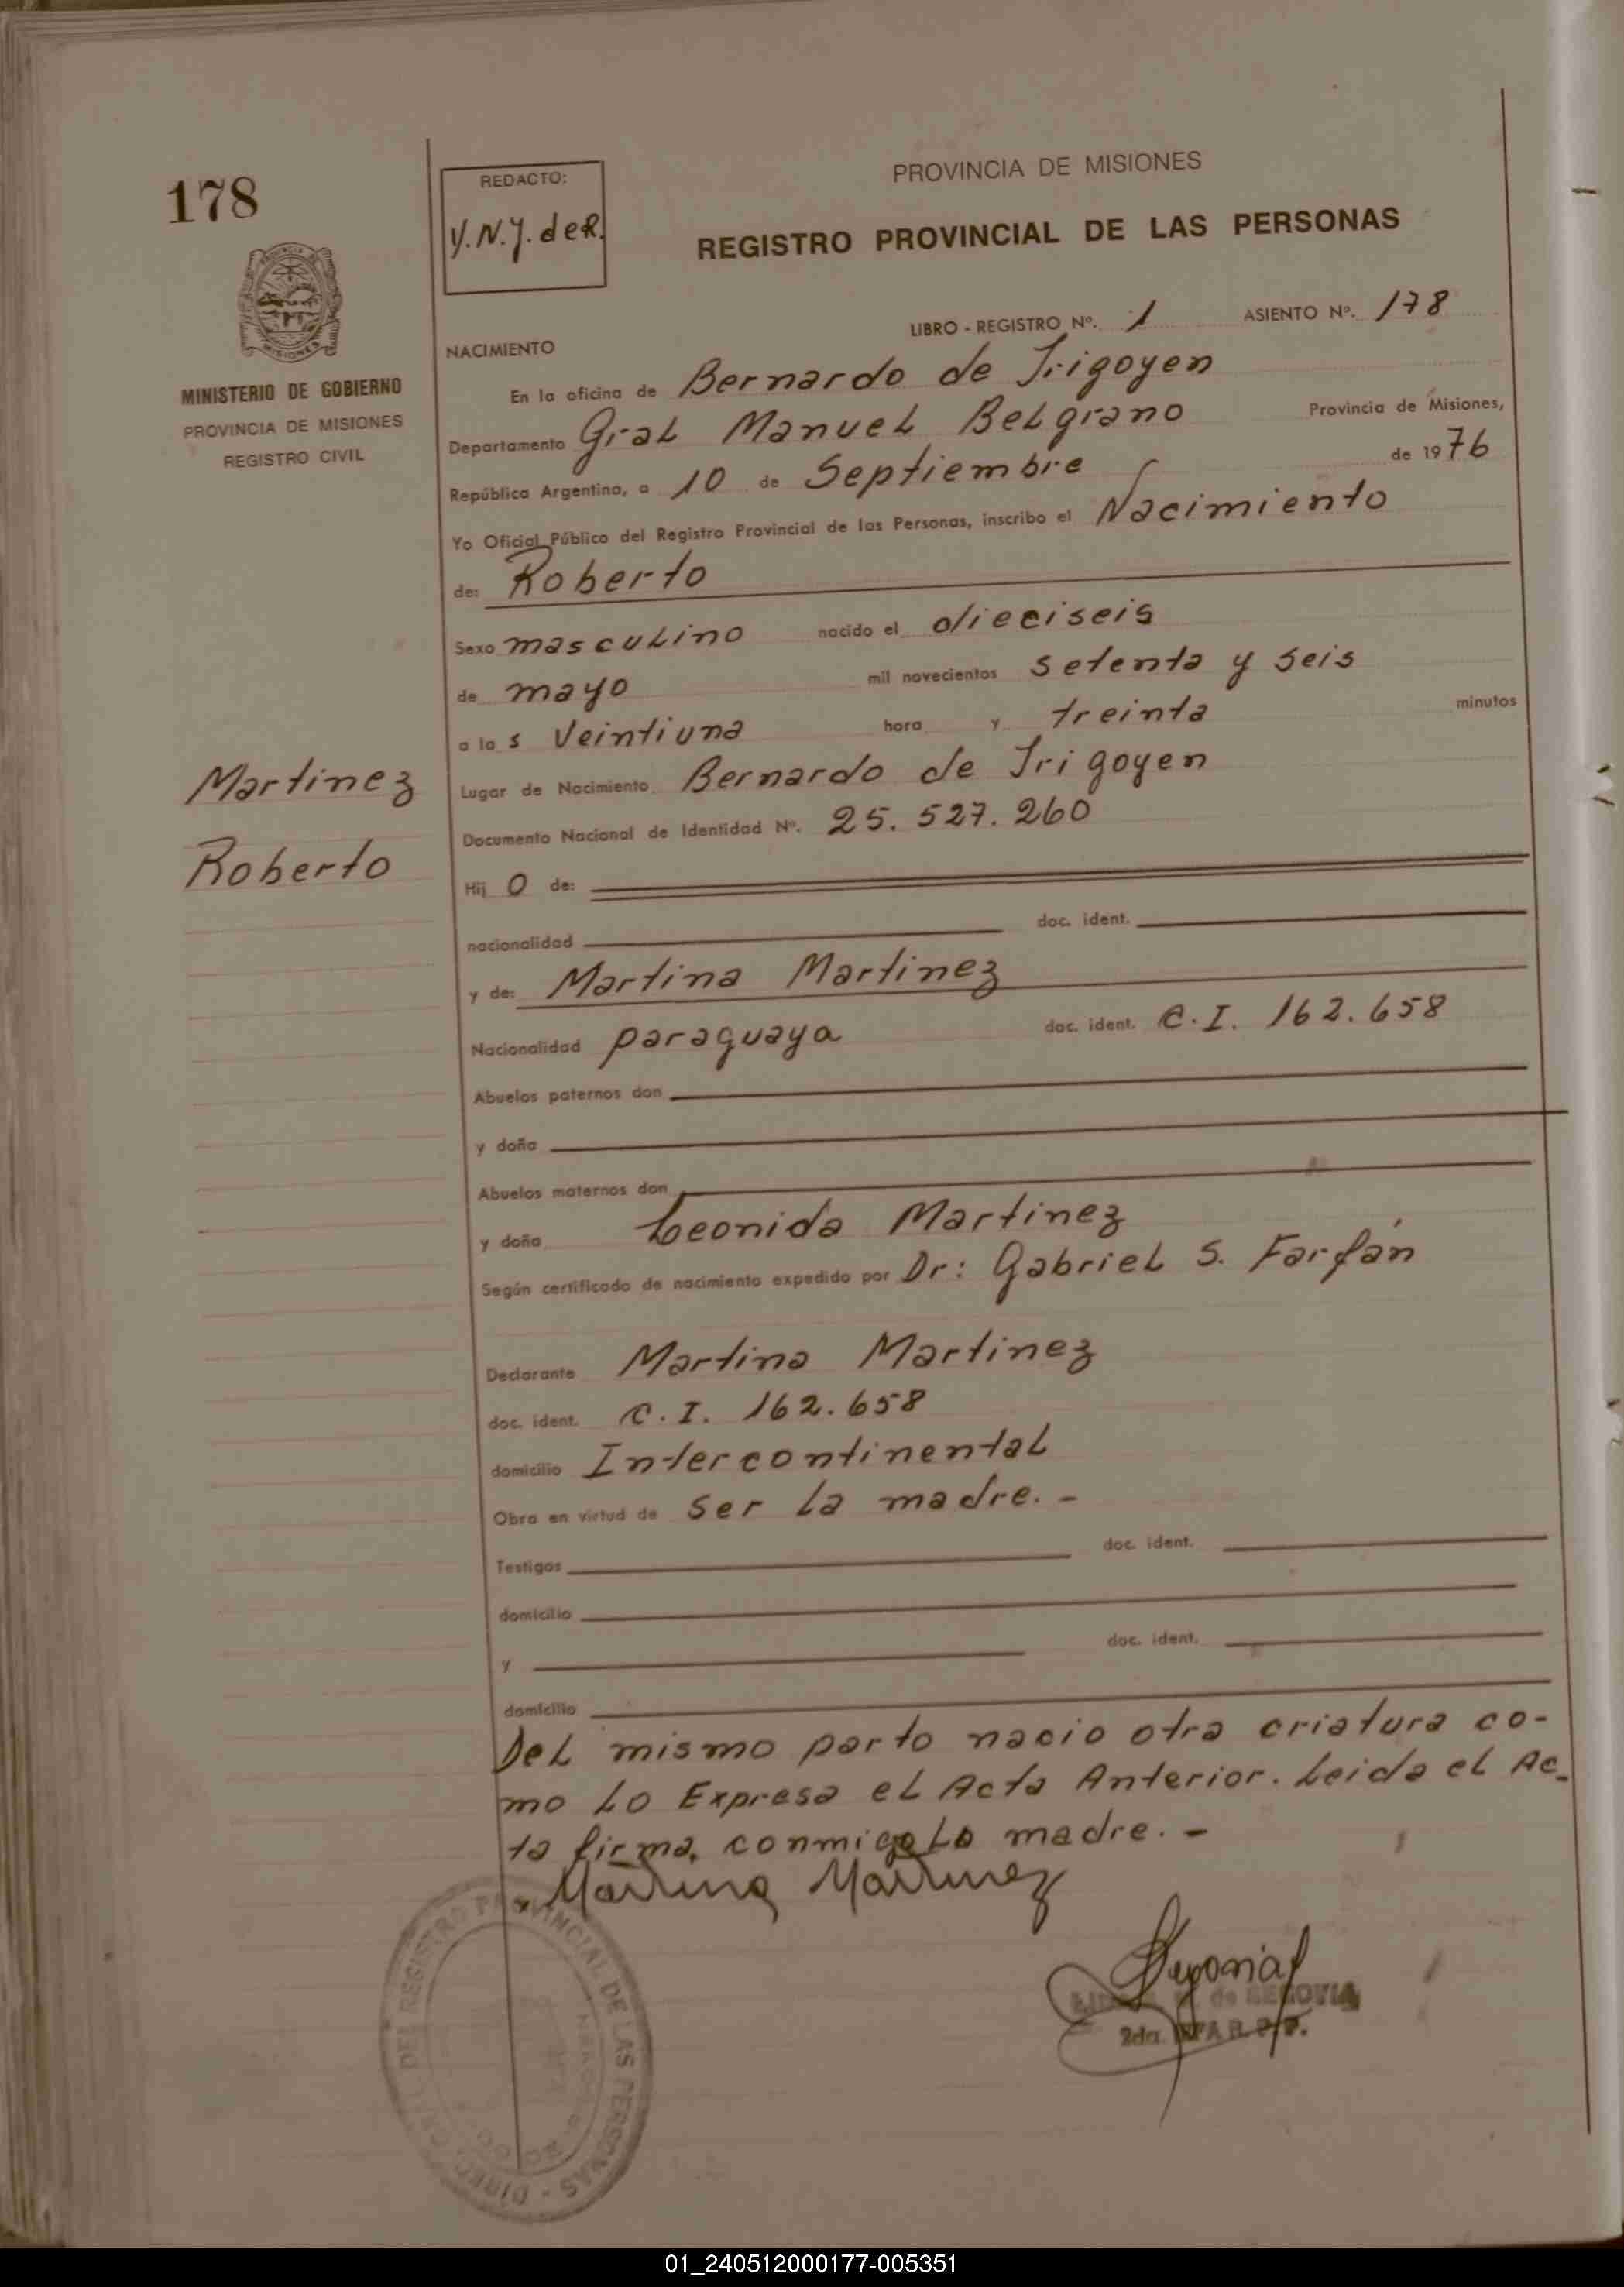 178
REDACTO:
Y.N.J. de R.
PROVINCIA DE MISIONES
REGISTRO PROVINCIAL DE LAS PERSONAS
MINISTERIO DE GOBIERNO
PROVINCIA DE MISIONES
REGISTRO CIVIL
LIBRO - REGISTRO Nº. 1 ASIENTO Nº. 178
NACIMIENTO
En la oficina de Bernardo de Irigoyen
Departamento Gral Manuel Belgrano Provincia de Misiones,
República Argentina, a 10 de Septiembre de 1976
Yo Oficial Público del Registro Provincial de las Personas, inscribo el Nacimiento
de: Roberto
Sexo masculino nacido el dieciseis
de mayo mil novecientos setenta y seis
a las Veintiuna hora y treinta minutos
Lugar de Nacimiento Bernardo de Irigoyen
Documento Nacional de Identidad Nº. 25.527.260
Martinez
Roberto
Hijo de:
nacionalidad doc. ident.
y de: Martina Martinez
Nacionalidad paraguaya doc. ident. C.I. 162.658
Abuelos paternos don
y doña
Abuelos maternos don
y doña Leonida Martinez
Según certificado de nacimiento expedido por Dr: Gabriel S. Farfán
Declarante Martina Martinez
doc. ident. C.I. 162.658
domicilio Intercontinental
Obra en virtud de ser la madre. -
Testigos doc. ident.
domicilio
y doc. ident.
domicilio
Del mismo parto nacio otra criatura co-
mo lo Expresa el Acta Anterior. Leida el Ac-
ta firma, conmigo la madre. -
Martina Martinez
de SEGOVIA
2da.
DEL REGISTRO PROVINCIAL DE LAS PERSONAS -
01_240512000177-005351